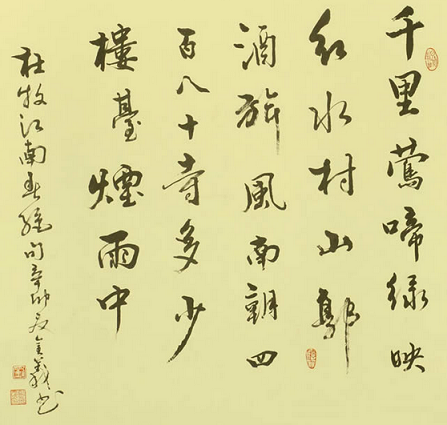 千里莺啼绿映
红水村山郭
酒旗風南朝四
百八十寺多少
樓臺煙雨中
杜牧江南春绝句